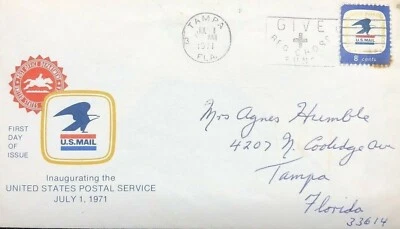 TAMPA
JUL 1
PM
1971
FLA.
GIVE
RED CROSS
U.S. MAIL
8 cents
FIRST
DAY
OF
ISSUE
U.S. MAIL
Inaugurating the
UNITED STATES POSTAL SERVICE
JULY 1, 1971
Mrs Agnes Humble
4207 N. Coolidge Ave
Tampa
Florida
33614